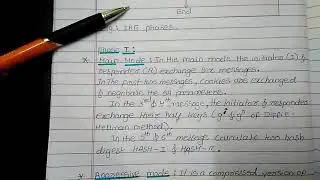 End
IKE phases.
Phase I:
* Main Mode: In this main mode the initiator (I) &
responder (R) exchange six messages.
In the first two messages, cookies are exchanged
& negotiate the SA parameters.
In the 3rd & 4th message, the initiator & responder
exchange their half keys (g^i & g^r of Diffie-
Hellman method).
In the 5th & 6th message calculate two hash
digest HASH-I & HASH-R.
* Aggressive mode: It is a compressed version of